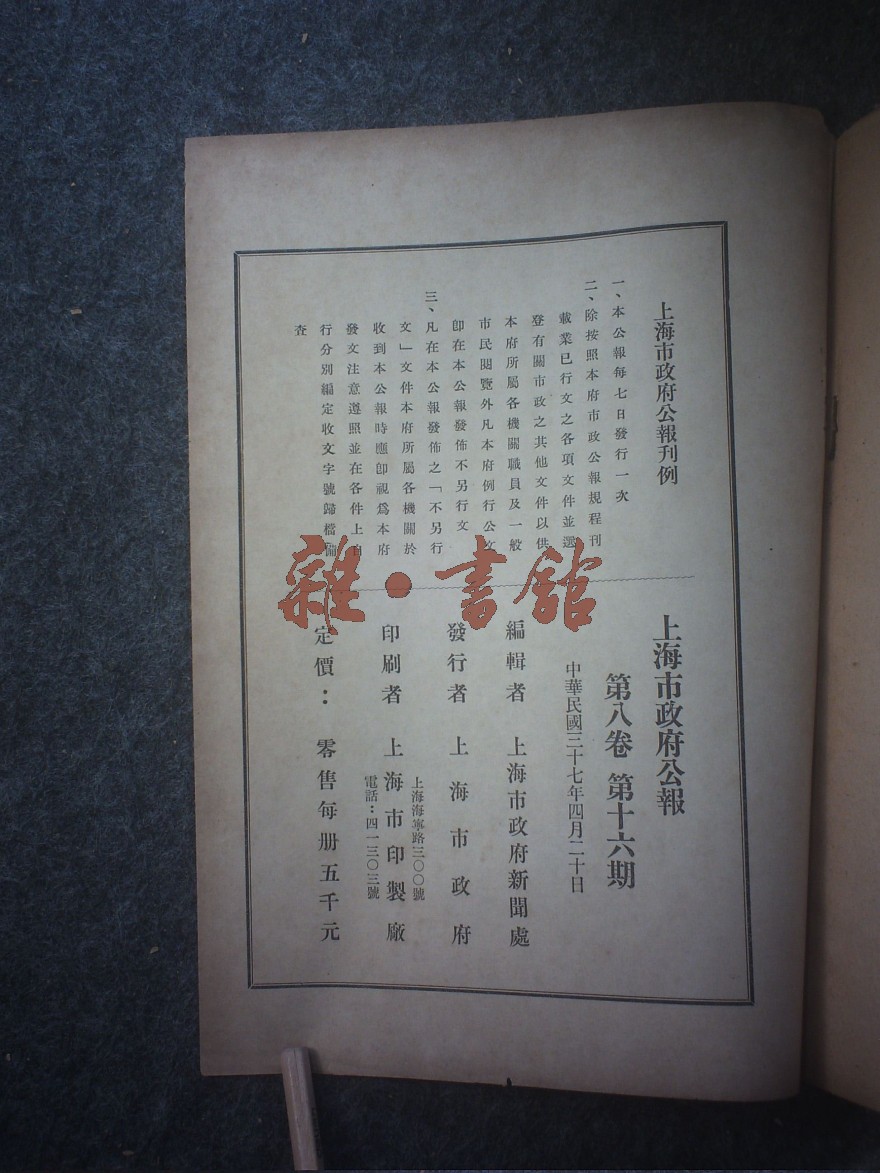 上海市政府公報刊例
一、本公報每七日發行一次
二、除按照本府市政公報規程刊
載業已行文之各項文件並選
登有關市政之其他文件以供
本府所屬各機關職員及一般
市民閱覽外凡本府例行公文
卽在本公報發佈不另行文
三、凡在本公報發佈之「不另行
文」文件本府所屬各機關於
收到本公報時應卽視爲本府
發文注意遵照並在各件上自
行分別編定收文字號歸檔備
查
上海市政府公報
第八卷 第十六期
中華民國三十七年四月二十日
編輯者 上海市政府新聞處
發行者 上海市政府
印刷者 上海市印製廠
上海海寧路三〇〇號
電話：四一三〇三號
定價：零售每册五千元
雜·書館